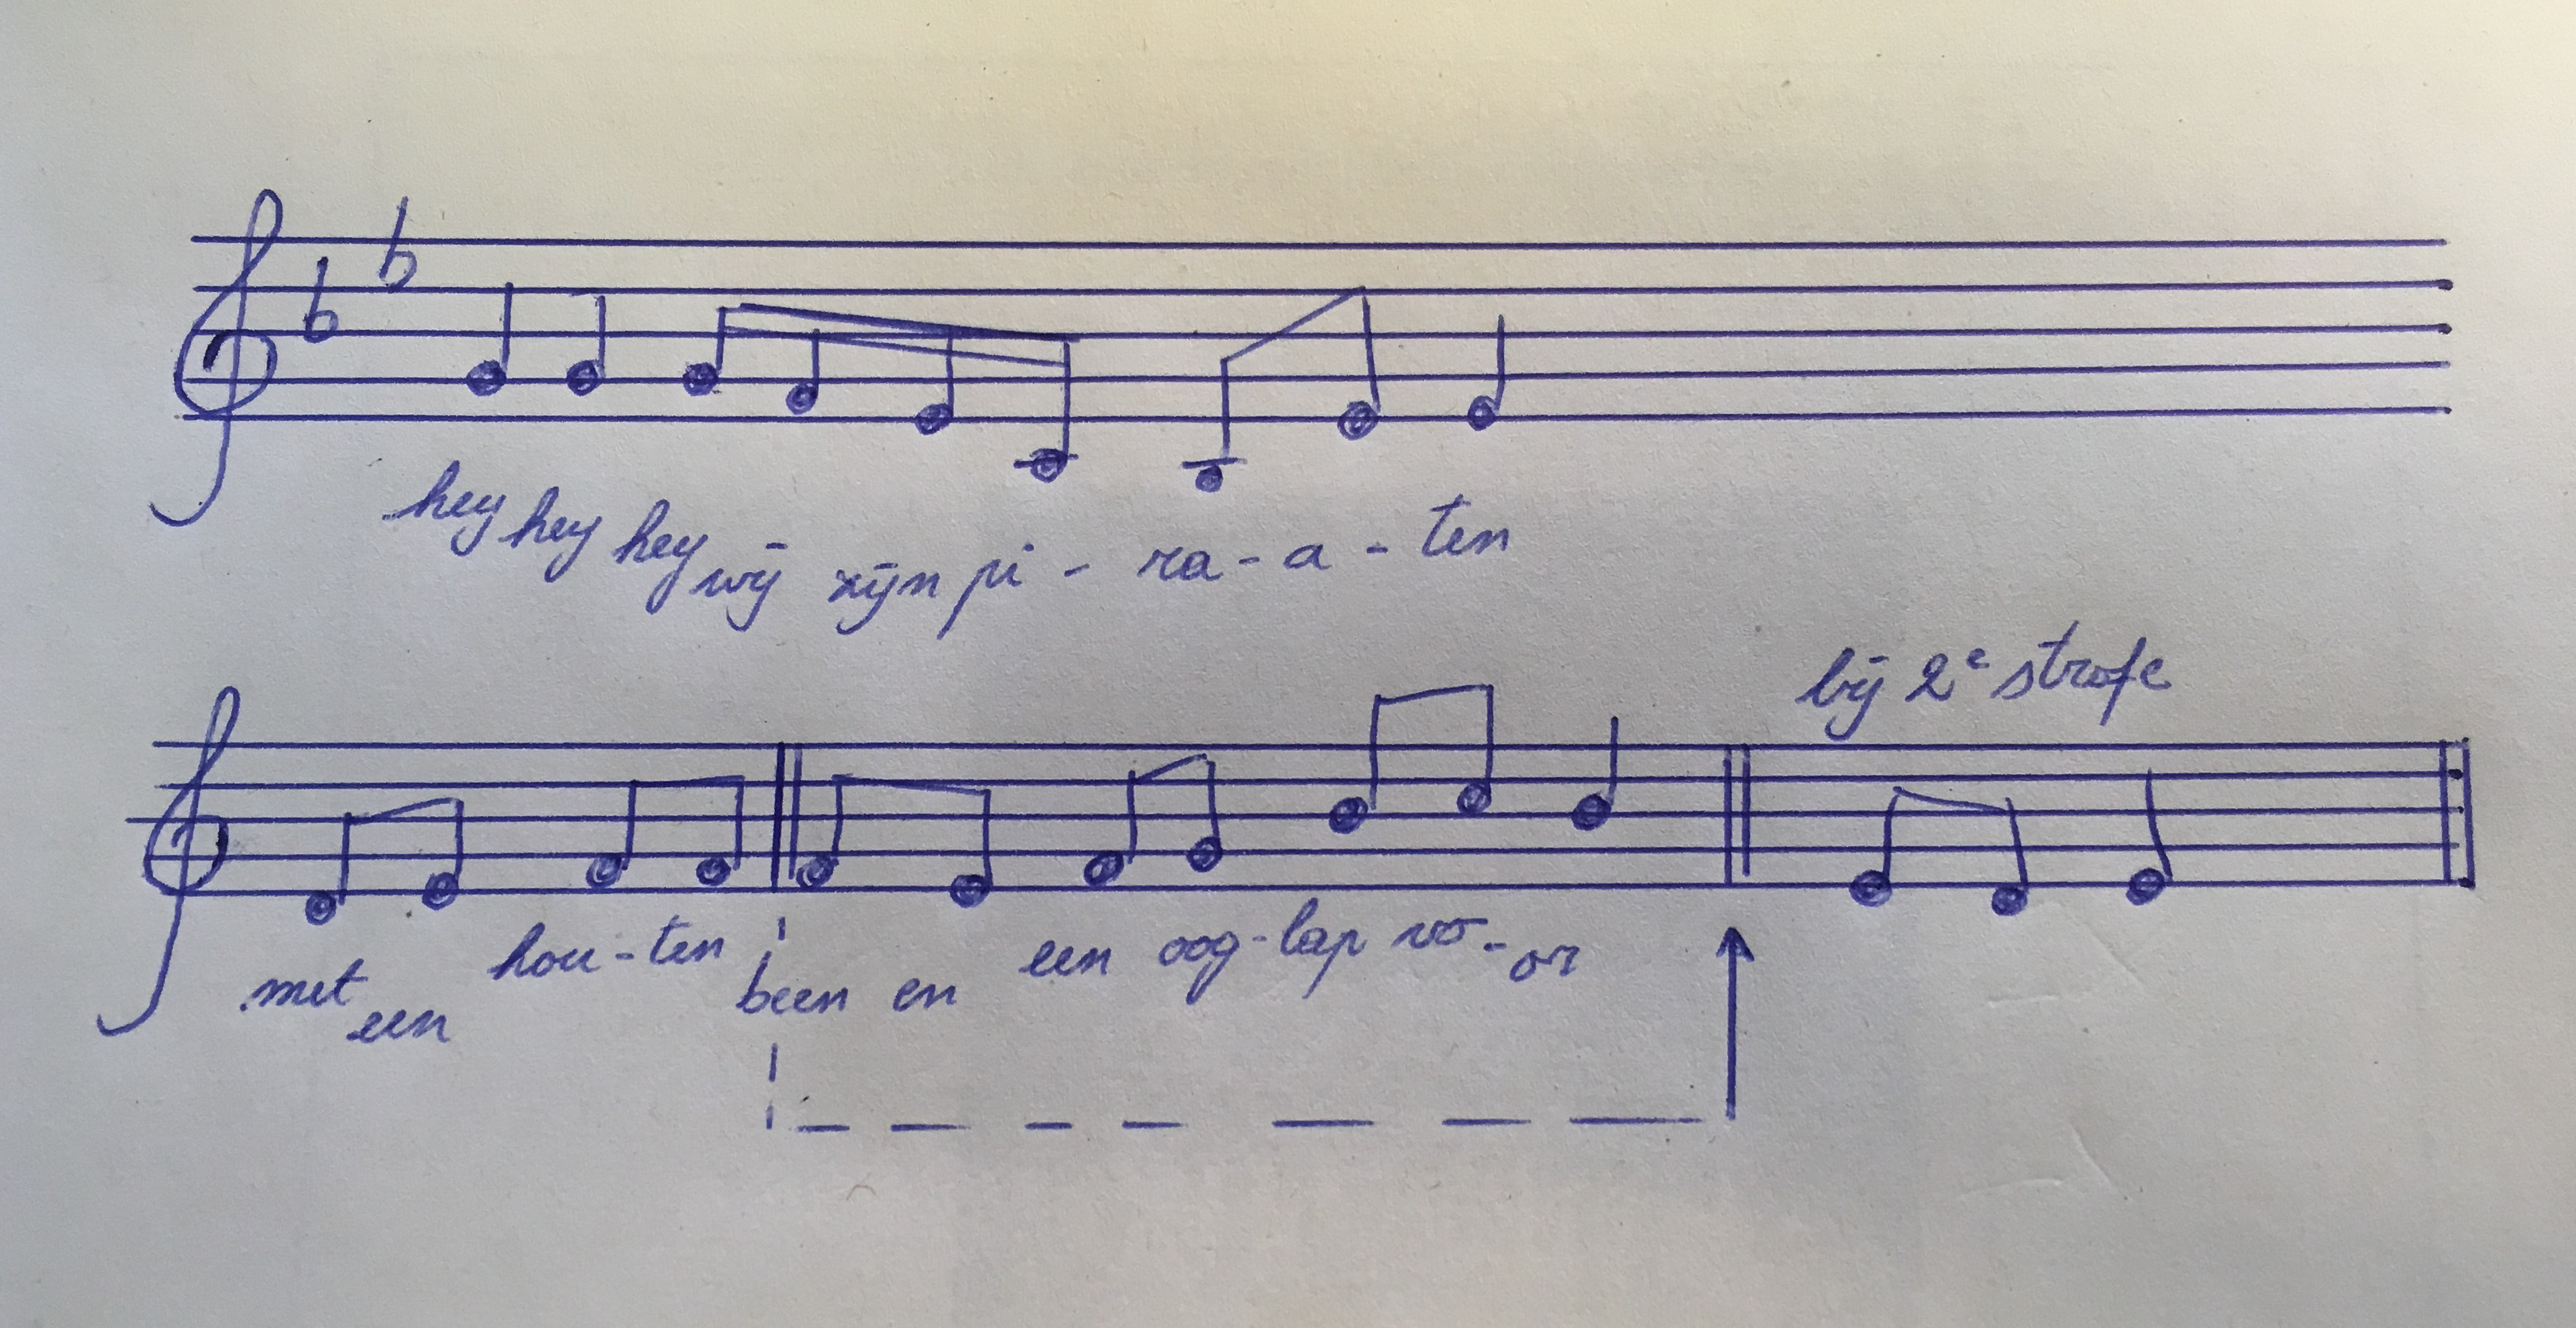 hey hey hey wij zijn pi - ra - a - ten
bij 2e strofe
met een hou - ten been en een oog - lap vo - or